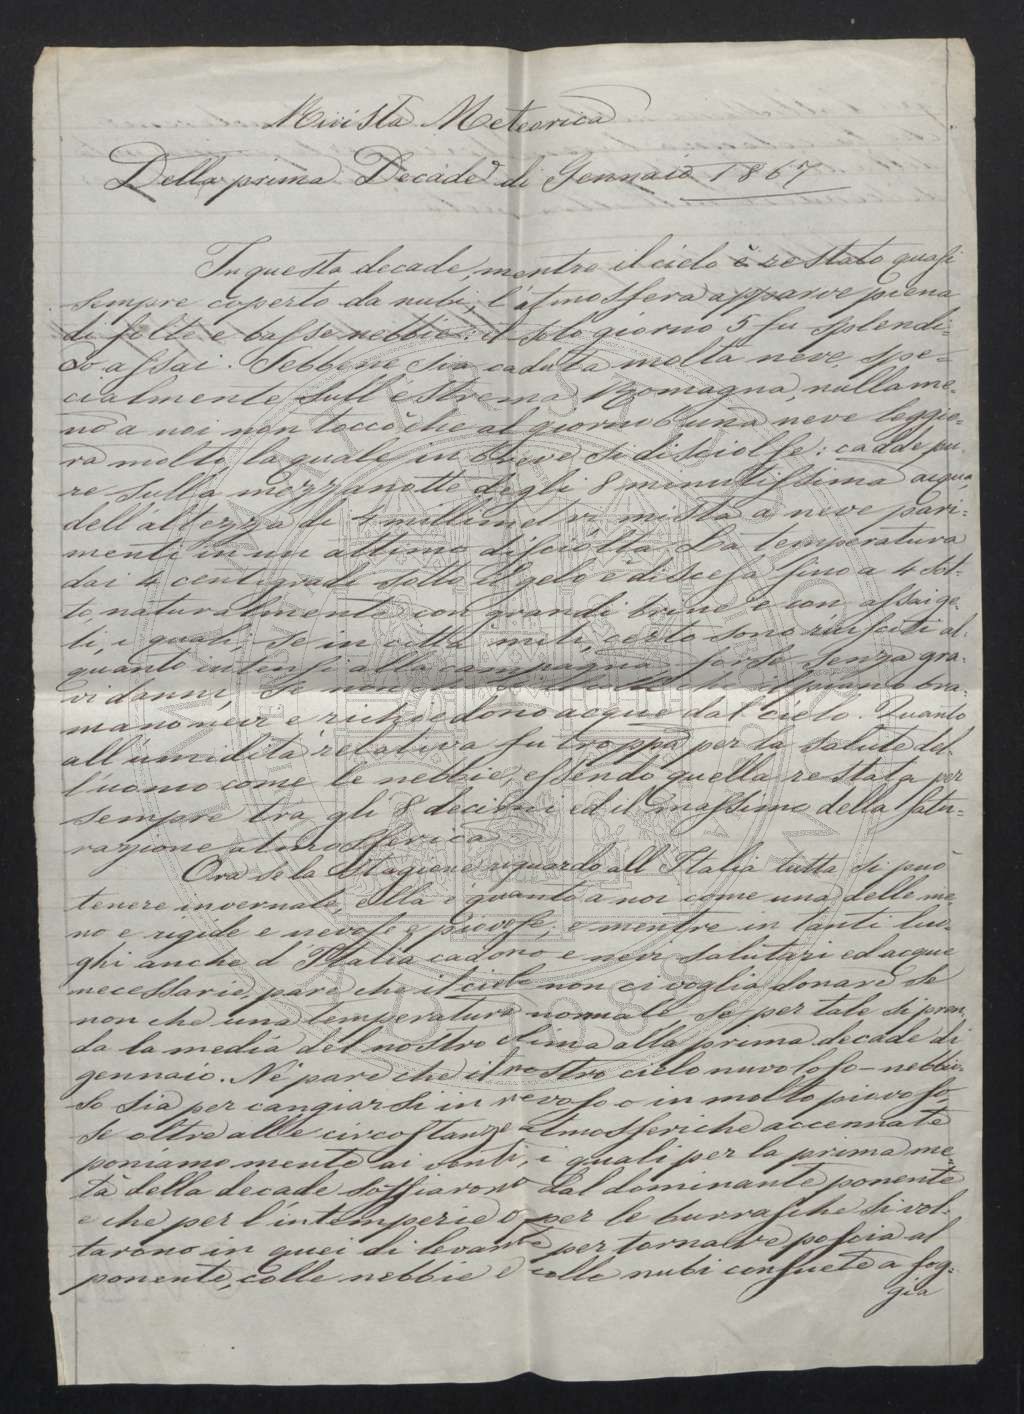 Rivista Meteorica
Della prima Decade di Gennaio 1867
In questa decade, mentre il cielo è restato quasi
sempre coperto da nubi, l'atmosfera apparve piena
di folte e basse nebbie: il solo giorno 5 fu splendi=
do assai. Sebbene sia caduta molta neve, spe=
cialmente sull'estrema Romagna, nullame=
no a noi non toccò che al giorno 6 una neve leggie=
ra molto, la quale in breve si disciolse: cadde pu
re sulla mezzanotte degli 8 minutissima acqua
dell'altezza di 4 millimetri mista a neve pari=
menti in un attimo disciolta. La temperatura
dai 4 centigradi sotto il gelo è discesa fino a 4 sot=
to, naturalmente con grandi brine e con assai ge=
li, i quali, se in città miti, certo sono riusciti al=
quanto intensi alla campagna, forse senza gra=
vi danni, se non che
mano nevi e richiedono acque dal cielo. Quanto
all'umidità relativa fu troppa per la salute del=
l'uomo come le nebbie, essendo quella restata per
sempre tra gli 8 decimi ed il massimo della satu=
razione atmosferica.
Ora se la stagione riguardo all'Italia tutta si può
tenere invernale, ella è quanto a noi come una delle me
no e rigide e nevose e piovose; e mentre in tanti luo=
ghi anche d'Italia cadono e nevi salutari ed acque
necessarie, pare che il cielo non ci voglia donare se
non che una temperatura normale se per tale si pren
da la media del nostro clima alla prima decade di
gennaio. Nè pare che il nostro cielo nuvoloso-nebbio=
so sia per cangiarsi in nevoso o in molto piovoso,
se oltre alle circostanze atmosferiche accennate
poniamo mente ai venti, i quali per la prima me=
tà della decade soffiarono dal dominante ponente
e che per l'intemperie o per le burrasche si vol=
tarono in quei dì levante per tornare poscia al
ponente, colle nebbie e colle nubi consuete a fog=
gia